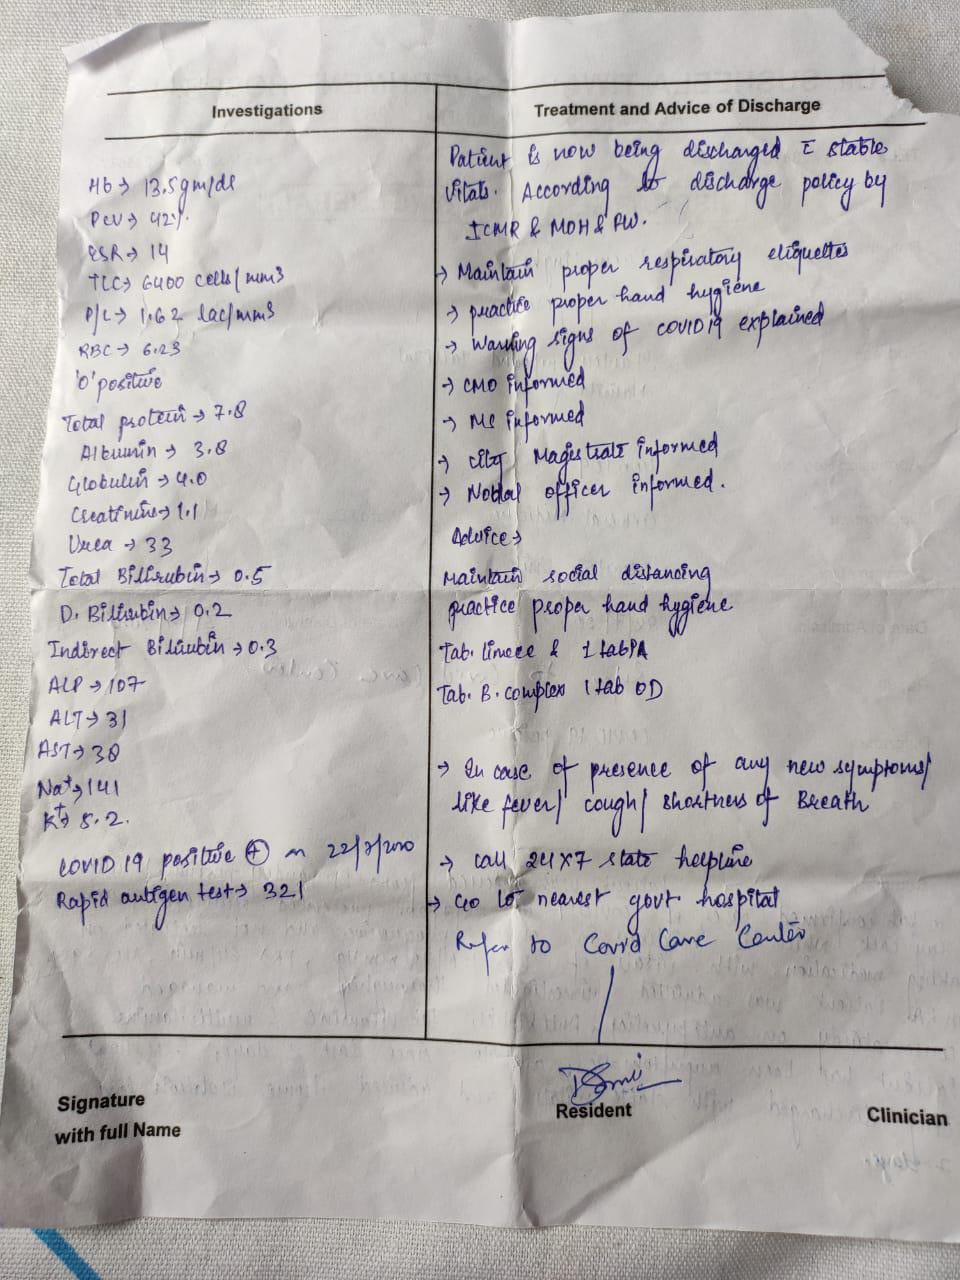 Investigations
Hb → 13.5 gm/dl
PCV → 42%
ESR → 14
TLC → 6400 cells/mm3
P/L → 1.62 lac/mm3
RBC → 6.23
'O' positive
Total protein → 7.8
Albumin → 3.8
Globulin → 4.0
Creatinine → 1.1
Urea → 33
Total Bilirubin → 0.5
D. Bilirubin → 0.2
Indirect Bilirubin → 0.3
ALP → 107
ALT → 31
AST → 38
Na+ → 141
K+ → 5.2.
COVID 19 positive (+) on
Rapid antigen test → 321
Treatment and Advice of Discharge
Patient is now being discharged c̄ stable
vitals. According to discharge policy by
ICMR & MOH & FW.
→ Maintain proper respiratory etiquettes
→ practice proper hand hygiene
→ Warning signs of COVID 19 explained
→ CMO informed
→ MS informed
→ City Magistrate informed
→ Nodal officer informed.
Advice →
Maintain social distancing
practice proper hand hygiene
Tab. limcee 1 tab
Tab. B. complex 1 tab OD
→ In case of presence of any new symptoms/
like fever/ cough/ shortness of Breath
→ Call 24X7 state helpline
→ Go to nearest govt hospital
Refer to Covid Care Center
Signature
with full Name
Resident
Clinician